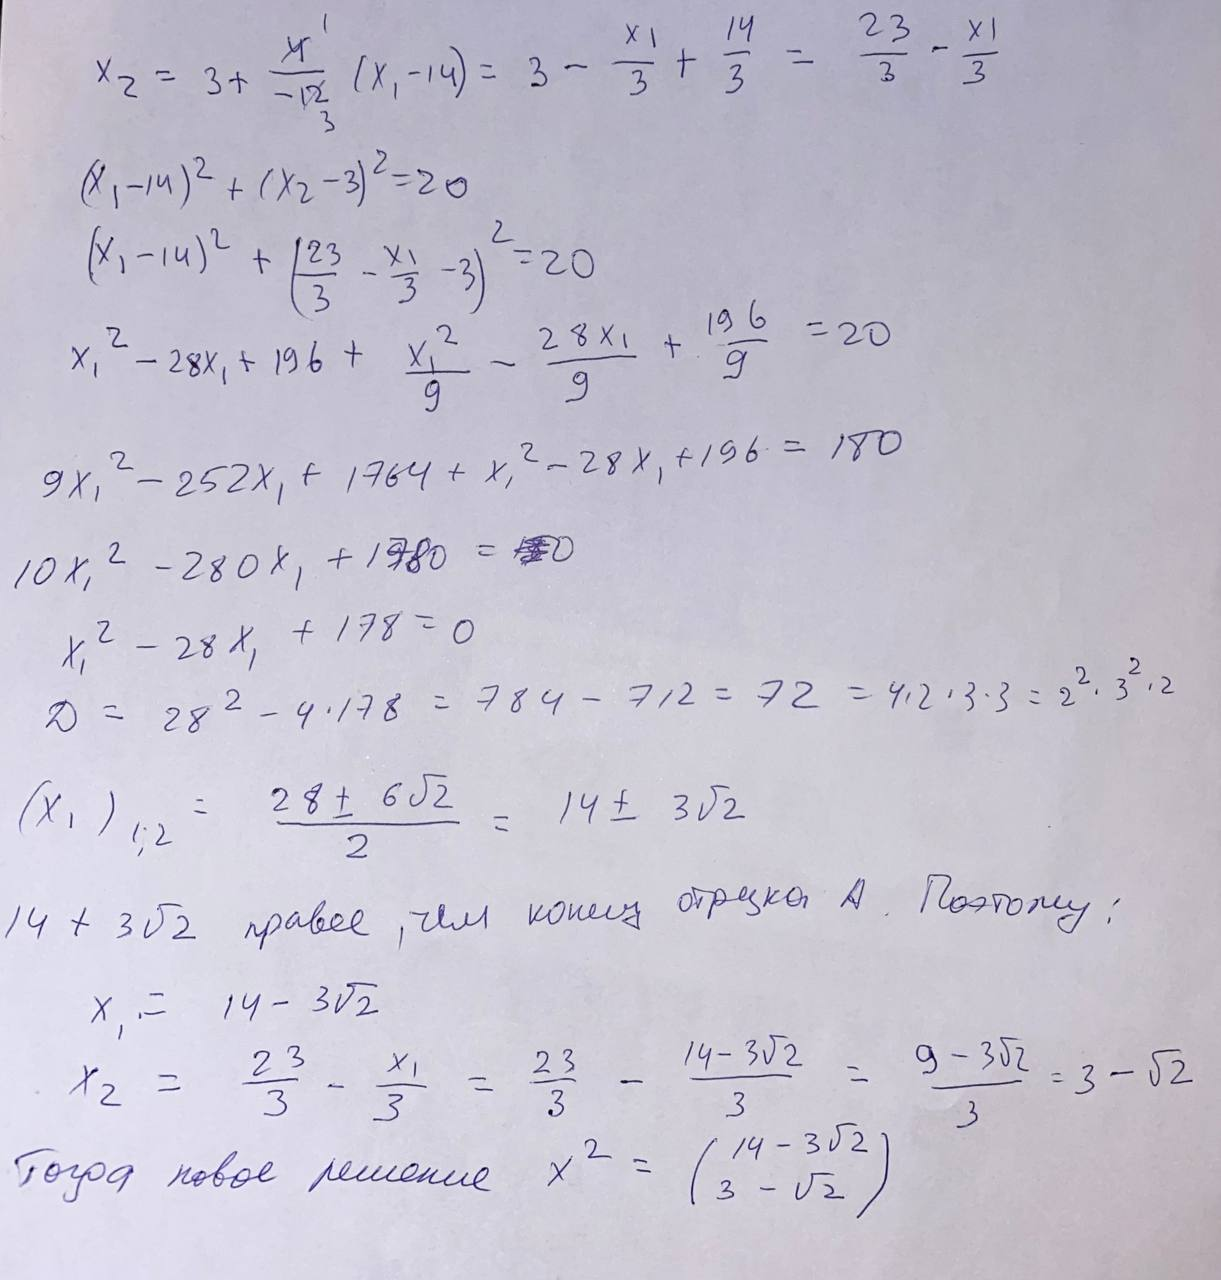 x₂ = 3 + 4¹/-12₃ (x₁ - 14) = 3 - x₁/3 + 14/3 = 23/3 - x₁/3
(x₁ - 14)² + (x₂ - 3)² = 20
(x₁ - 14)² + (23/3 - x₁/3 - 3)² = 20
x₁² - 28x₁ + 196 + x₁²/9 - 28x₁/9 + 196/9 = 20
9x₁² - 252x₁ + 1764 + x₁² - 28x₁ + 196 = 180
10x₁² - 280x₁ + 1780 = 0
x₁² - 28x₁ + 178 = 0
D = 28² - 4·178 = 784 - 712 = 72 = 4·2·3·3 = 2²·3²·2
(x₁)₁;₂ = (28 ± 6√2)/2 = 14 ± 3√2
14 + 3√2 правее, чем конец отрезка A. Поэтому:
x₁ = 14 - 3√2
x₂ = 23/3 - x₁/3 = 23/3 - (14 - 3√2)/3 = (9 - 3√2)/3 = 3 - √2
Тогда новое решение x² = (14 - 3√2
3 - √2)